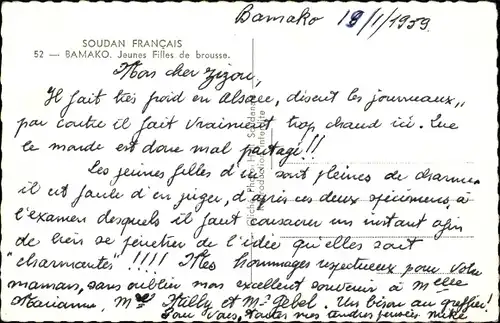 Bamako 19/1/1959
SOUDAN FRANÇAIS
52 — BAMAKO. Jeunes Filles de brousse.
Mon cher Zizou,
"Il fait très froid en Alsace, disent les journaux,,
par contre il fait vraiment trop chaud ici. Que
le monde est donc mal partagé!!
Les jeunes filles d'ici sont pleines de charme
il est facile d'en juger, d'après ces deux spécimens à
l'examen desquels il faut consacrer un instant afin
de bien se pénétrer de l'idée qu'elles sont
"charmantes" !!!! Mes hommages respectueux pour votre
maman, sans oublier mon excellent souvenir à Melle
Marianne, Me et Mr Bebel. Un bisou au greffier.
Pour vous, toutes mes tendres pensées